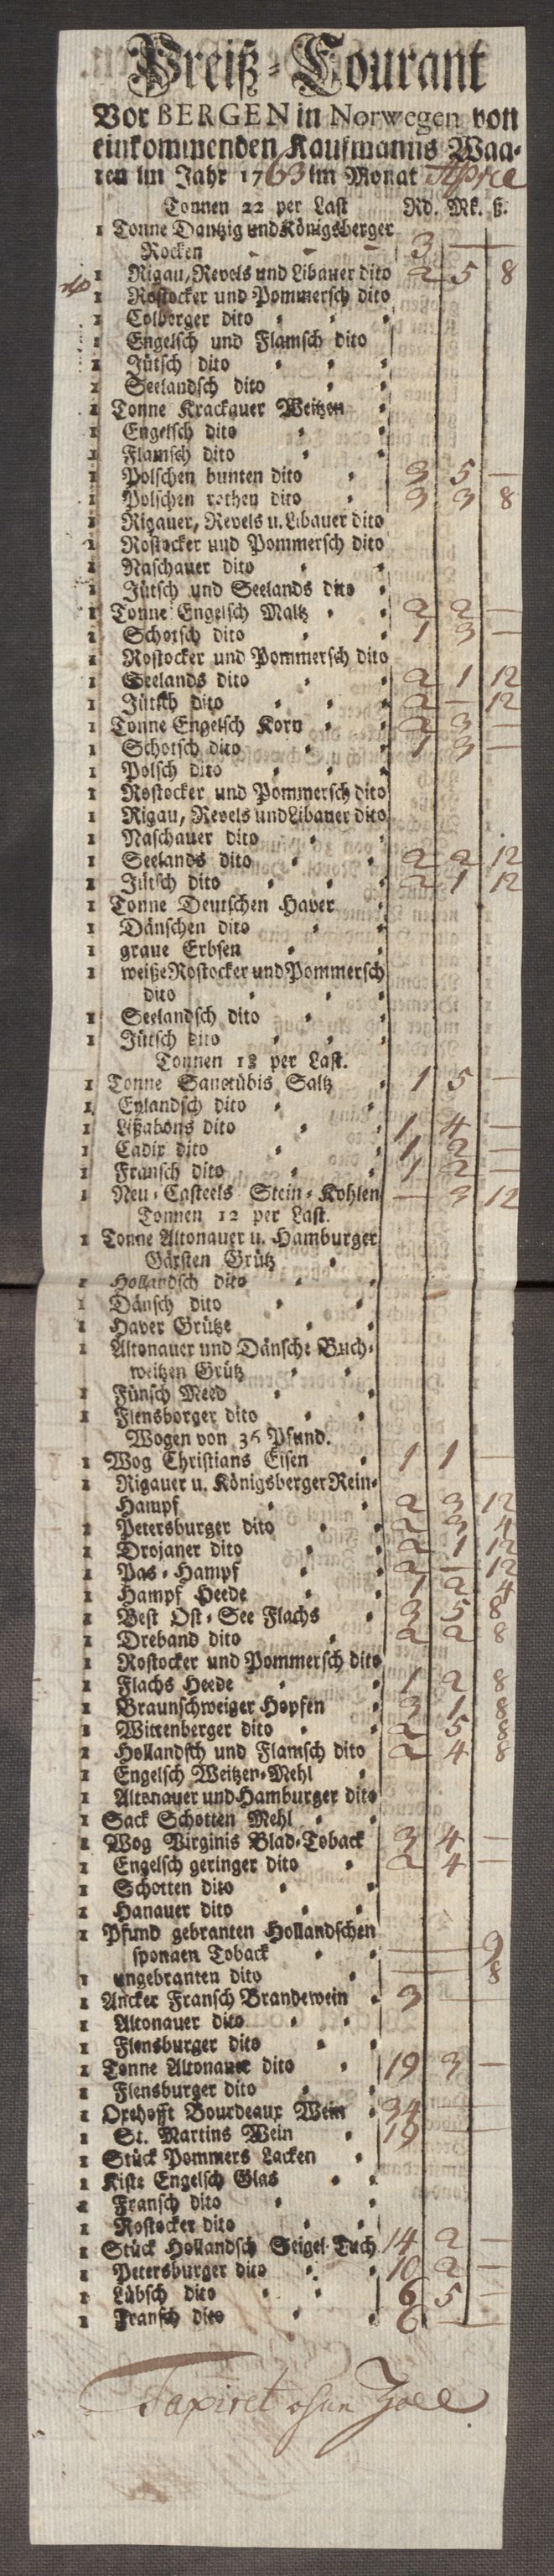 Preiß-Courant
Vor BERGEN in Norwegen von
einkommenden Kaufmanns Waa-
ren im Jahr 1763 im Monat
Tonnen 22 per Last Rd. Mk. ß.
1 Tonne Dantzig und Königsberger
Rocken - - - 3 —
1 Rigau, Revels und Libauer dito 2 5 8
1 Rostocker und Pommersch dito
1 Colberger dito
1 Engelsch und Flamsch dito
1 Jütsch dito
1 Seelandsch dito
1 Tonne Krackauer Weitzen
1 Engelsch dito
1 Flamsch dito
1 Polschen bunten dito 3 5 —
1 Polschen rothen dito 3 3 8
1 Rigauer, Revels u. Libauer dito
1 Rostocker und Pommersch dito
1 Naschauer dito
1 Jütsch und Seelands dito
1 Tonne Engelsch Maltz 2 2 —
1 Schotsch dito 1 3 —
1 Rostocker und Pommersch dito
1 Seelands dito 2 1 12
1 Jütsch dito 2 — 12
1 Tonne Engelsch Korn 2 3 —
1 Schotsch dito 1 3 —
1 Polsch dito
1 Rostocker und Pommersch dito
1 Rigau, Revels und Libauer dito
1 Naschauer dito
1 Seelands dito 2 2 12
1 Jütsch dito 2 1 12
1 Tonne Deutschen Haver
1 Dänschen dito
1 graue Erbsen
1 weiße Rostocker und Pommersch
dito
1 Seelandsch dito
1 Jütsch dito
Tonnen 18 per Last.
1 Tonne Sanctübis Saltz 1 5 —
1 Eylandsch dito
1 Lißabons dito 1 4 —
1 Cadix dito 1 2 —
1 Fransch dito 1 2 —
1 Neu-Casteels Stein-Kohlen — 3 12
Tonnen 12 per Last.
1 Tonne Altonauer u. Hamburger
Gärsten Grütz
1 Hollandsch dito
1 Dänsch dito
1 Haver Grütze
1 Altonauer und Dänsche Buch-
weitzen Grütz
1 Fünsch Meed
1 Flensborger dito
Wogen von 36 Pfund.
1 Wog Christians Eisen 1 1 —
1 Rigauer u. Königsberger Rein-
Hampf 2 3 12
1 Petersburger dito 2 3 4
1 Drojaner dito 2 1 12
1 Pas-Hampf 2 — 12
1 Hampf Heede 1 2 4
1 Best Ost-See Flachs 3 5 8
1 Dreband dito 2 2 8
1 Rostocker und Pommersch dito
1 Flachs Heede 1 2 8
1 Braunschweiger Hopfen 3 1 8
1 Wittenberger dito 2 5 8
1 Hollandsch und Flamsch dito 2 4 8
1 Engelsch Weitzen-Mehl
1 Altonauer und Hamburger dito
1 Sack Schotten Mehl
1 Wog Virginis Blad-Toback 3 4 —
1 Engelsch geringer dito 2 4 —
1 Schotten dito
1 Hanauer dito
1 Pfund gebranten Hollandschen
sponnen Toback — — 9
1 ungebranten dito — — 8
1 Ancker Fransch Brandewein 3 —
1 Altonauer dito
1 Flensburger dito
1 Tonne Altonauer dito 19 3 —
1 Flensburger dito
1 Oxehofft Bourdeaux Wein 34 —
1 St. Martins Wein 19 —
1 Stück Pommers Lacken
1 Kiste Engelsch Glas
1 Fransch dito
1 Rostocker dito
1 Stück Hollandsch Seigel-Tuch 14 2 —
1 Petersburger dito 10 2 —
1 Lübsch dito 6 5 —
1 Fransch dito 6 —
Taxiret